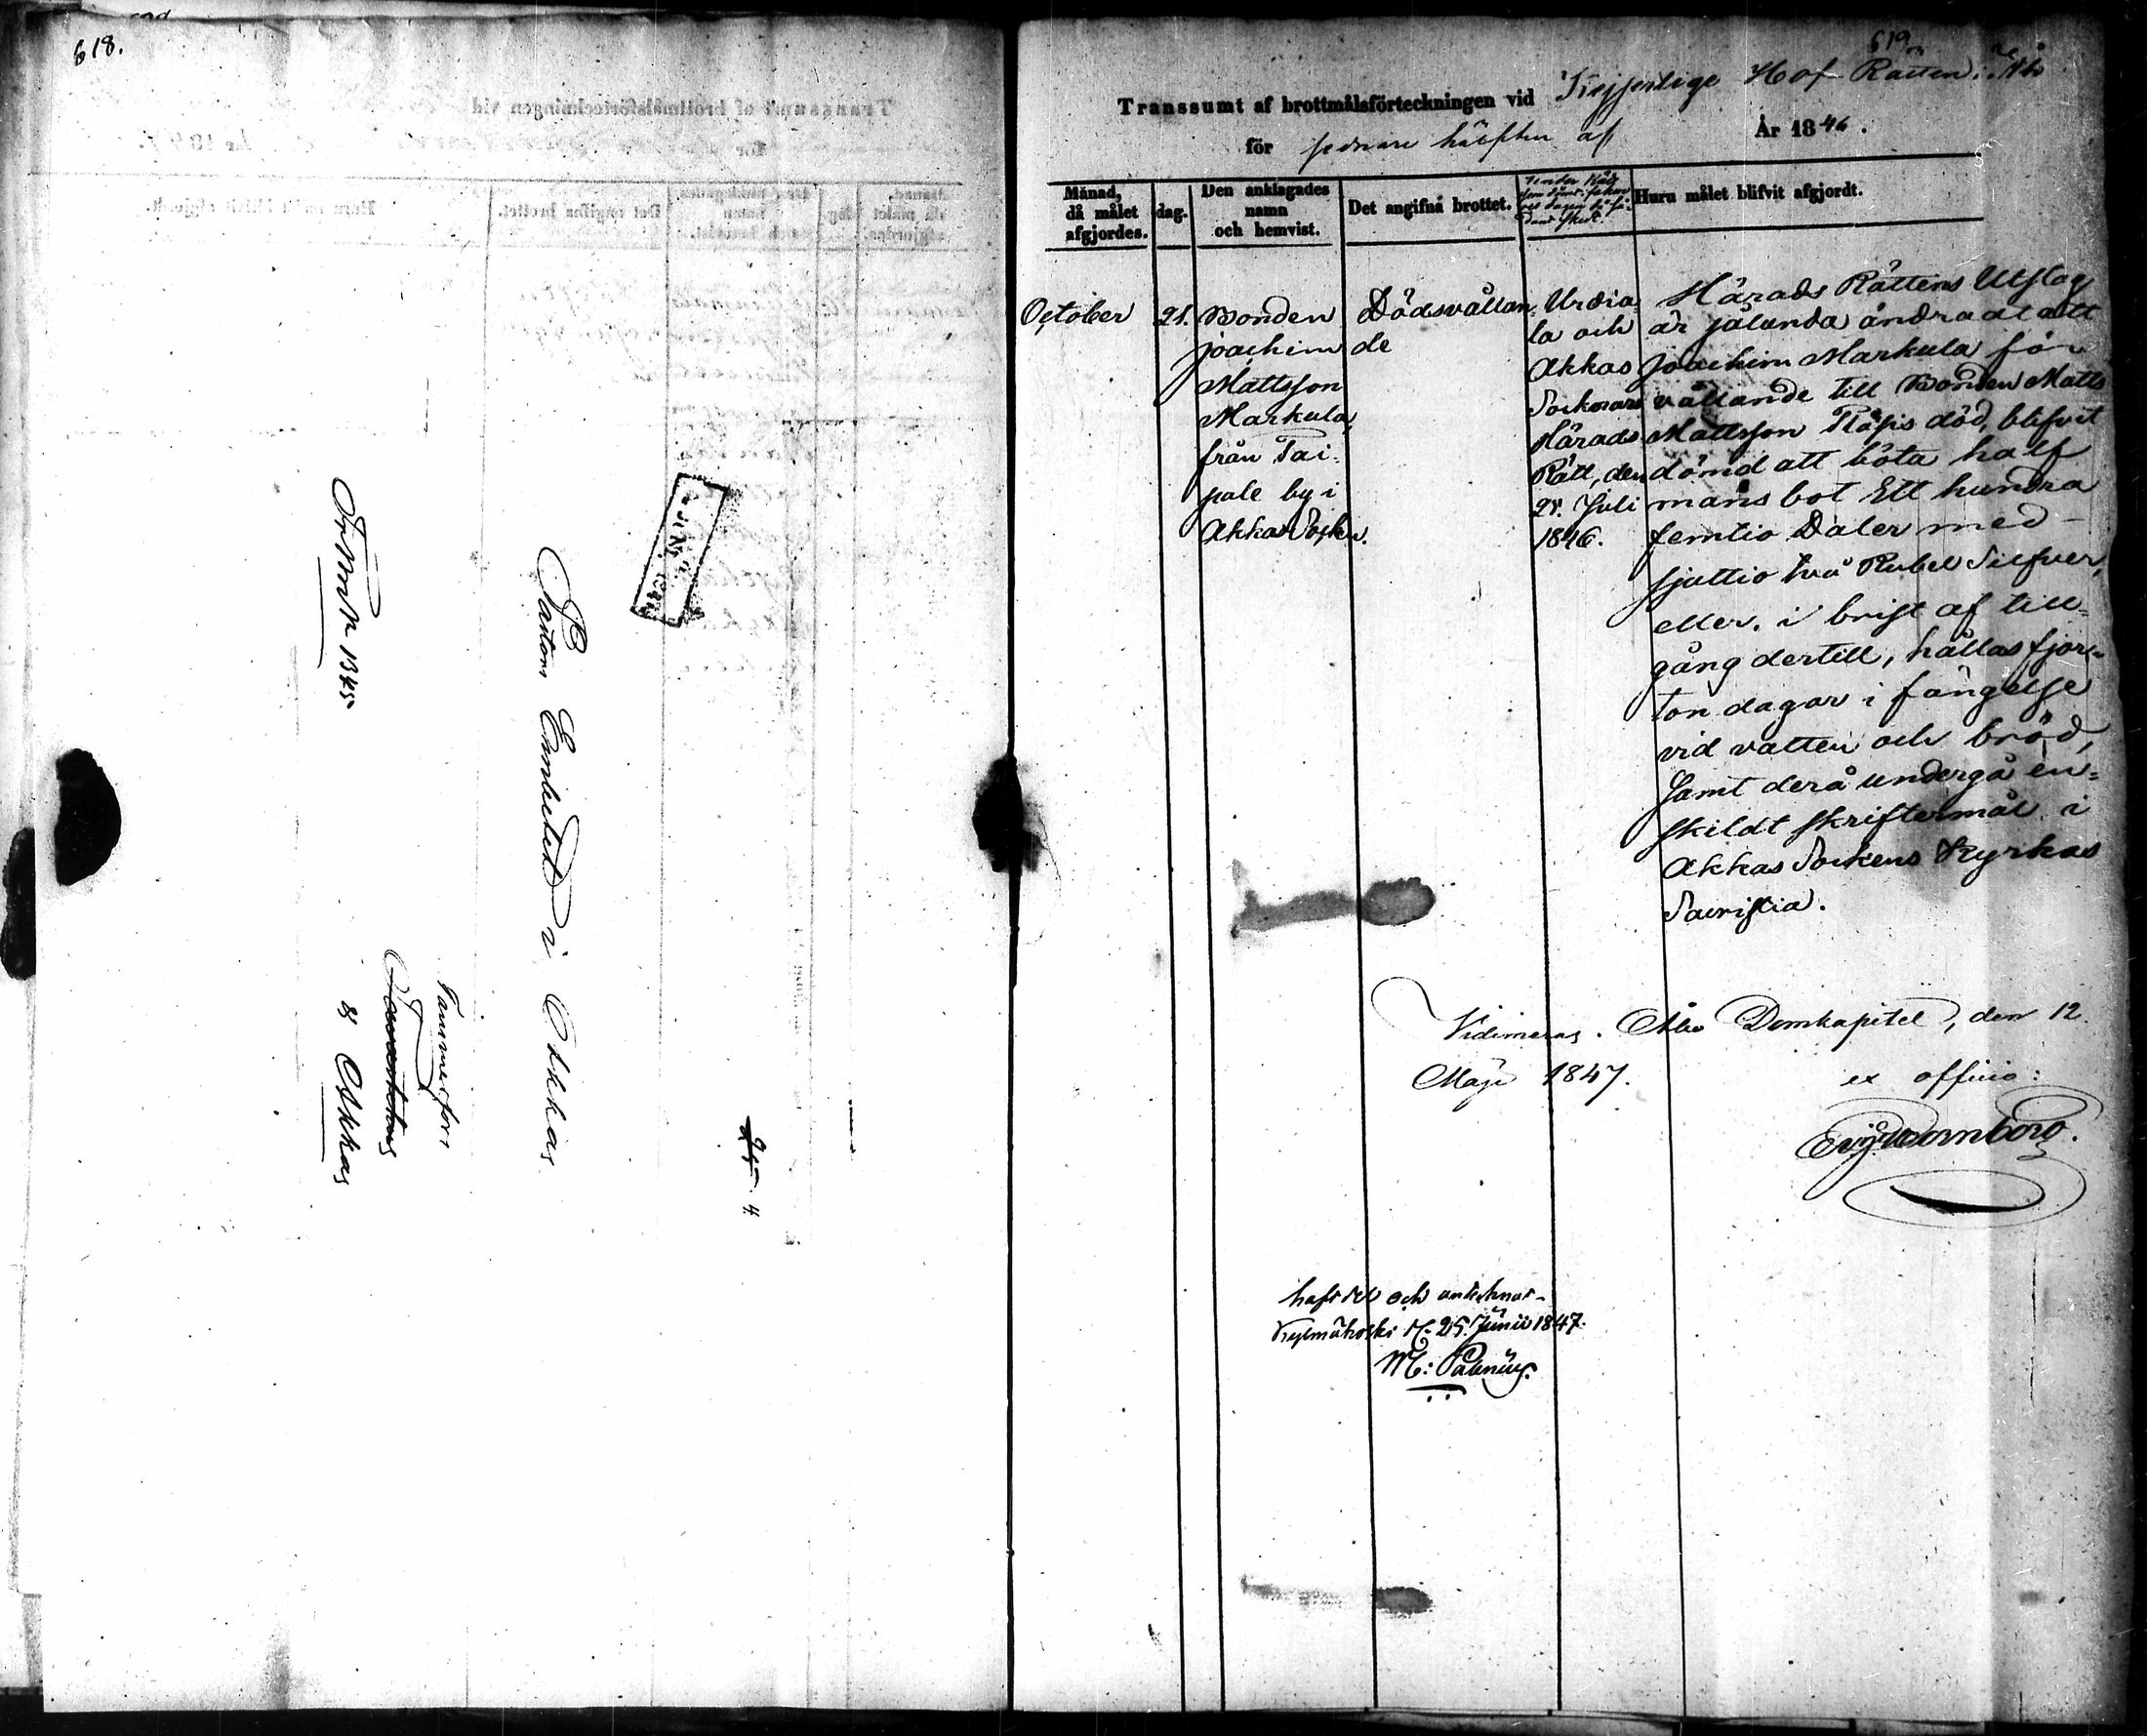 618.
Pastors Embetet i Akkas
Tammerfors
Tavastehus
& Akkas
25. 4.
619.
Transsumt af brottmålsförteckningen vid Kejserlige Hof Rätten i Åbo
för sednare hälften af År 1846.
Månad, då målet afgjordes.
dag.
Den anklagades namn och hemvist.
Det angifna brottet.
Huru målet blifvit afgjordt.
October
21.
Bonden
Joachim
Mattsson
Markula,
från Tai-
pale by i
Akkas Socken.
Dödsvållan-
de
Urdia-
la och
Akkas
Socknars
Härads
Rätt, den
21. Juli
1846.
Härads Rättens Utslag
är sålunda ändradt att
Joachim Markula för
vållande till Bonden Matts
Mattsson död, blifvit
dömd att böta half
mans bot Ett hundra
femtio Daler med
sjuttio två Rubel Silfver,
eller, i brist af till-
gång dertill, hållas fjor-
ton dagar i fängelse
vid vatten och bröd,
samt derå undergå en-
skildt skriftermål i
Akkas Sockens Kyrkas
Sacristia.
Vidimeras. Åbo Domkapitel, den 12.
Maji 1847. ex officio:
haft del och antecknat
Kylmäkoski d. 25. Junii 1847.